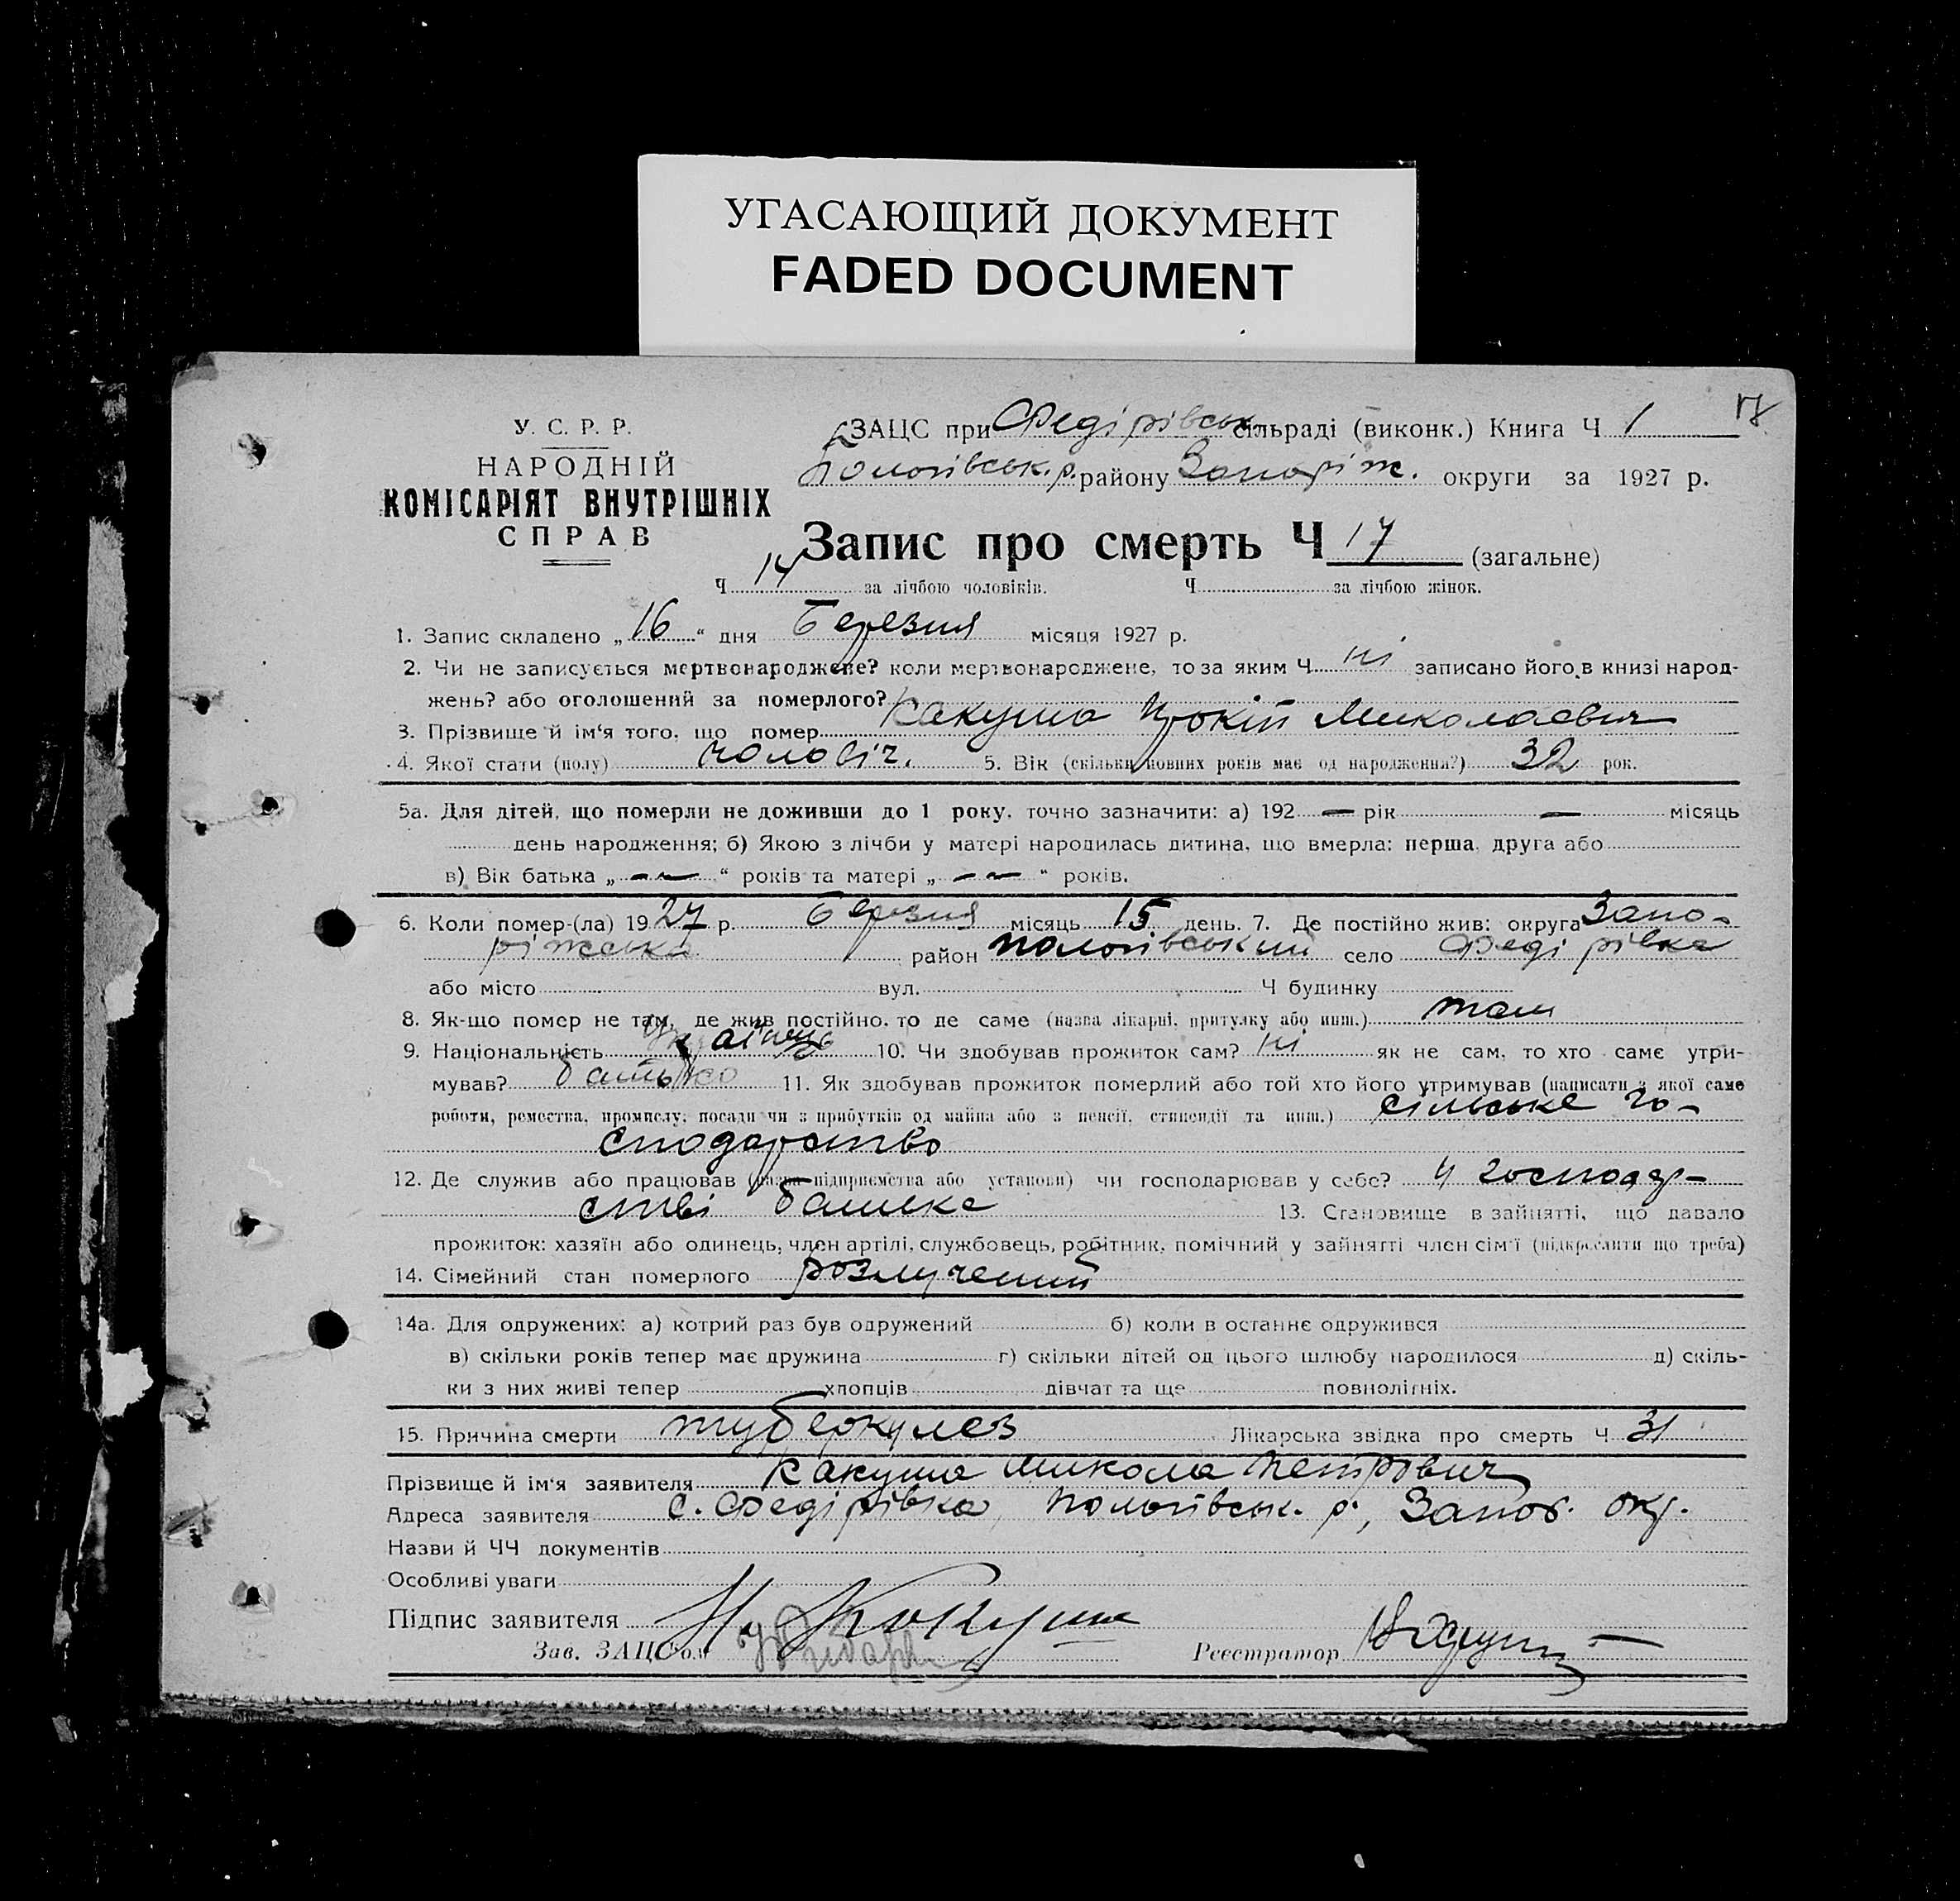 УГАСАЮЩИЙ ДОКУМЕНТ
FADED DOCUMENT
17
У. С. Р. Р.
НАРОДНІЙ
КОМІСАРІЯТ ВНУТРІШНІХ
СПРАВ
ЗАЦС при Федірівськ. сільраді (виконк.) Книга Ч 1
Пологівськ. р. району Запоріж. округи за 1927 р.
Запис про смерть Ч 17 (загальне)
Ч 14 за лічбою чоловіків. Ч за лічбою жінок.
1. Запис складено „16“ дня Березня місяця 1927 р.
2. Чи не записується мертвонароджене? коли мертвонароджене, то за яким Ч ні записано його в книзі народ-
жень? або оголошений за померлого?
3. Прізвище й ім‘я того, що помер Какуша Прокіп Миколаєвич
4. Якої стати (полу) чоловіч. 5. Вік (скільки повних років має од народження?) 32 рок.
5а. Для дітей, що померли не доживши до 1 року, точно зазначити: а) 192 — рік — місяць
день народження; б) Якою з лічби у матері народилась дитина, що вмерла: перша, друга або
в) Вік батька „ — — “ років та матері „ — — “ років.
6. Коли помер-(ла) 1927 р. березня місяць 15 день. 7. Де постійно жив: округа Запо-
ріжська район пологівський село Федірівка
або місто вул. Ч будинку
8. Як-що помер не там, де жив постійно, то де саме (назва лікарні, притулку або инш.) там
9. Національність українець 10. Чи здобував прожиток сам? ні як не сам, то хто саме утри-
мував? батько 11. Як здобував прожиток померлий або той хто його утримував (написати з якої саме
роботи, ремества, промислу, посади чи з прибутків од майна або з пенсії, стипендії та инш.) сільське го-
сподарство
12. Де служив або працював (назва підприємства або установи) чи господарював у себе? у господар-
стві батька 13. Становище в зайнятті, що давало
прожиток: хазяїн або одинець, член артілі, службовець, робітник, помічний у зайнятті член сім‘ї (підкреслити що треба)
14. Сімейний стан померлого розлучений
14а. Для одружених: а) котрий раз був одружений б) коли в останнє одружився
в) скільки років тепер має дружина г) скільки дітей од цього шлюбу народилося д) скіль-
ки з них живі тепер хлопців дівчат та ще повнолітніх.
15. Причина смерти туберкулез Лікарська звідка про смерть Ч 31
Прізвище й ім‘я заявителя Какуша Микола Петрович
Адреса заявителя с. Федірівка, Пологівськ. р., Запоr. окр.
Назви й ЧЧ документів
Особливі уваги
Підпис заявителя Н. Кокуша
Зав. ЗАЦС‘ом Реєстратор